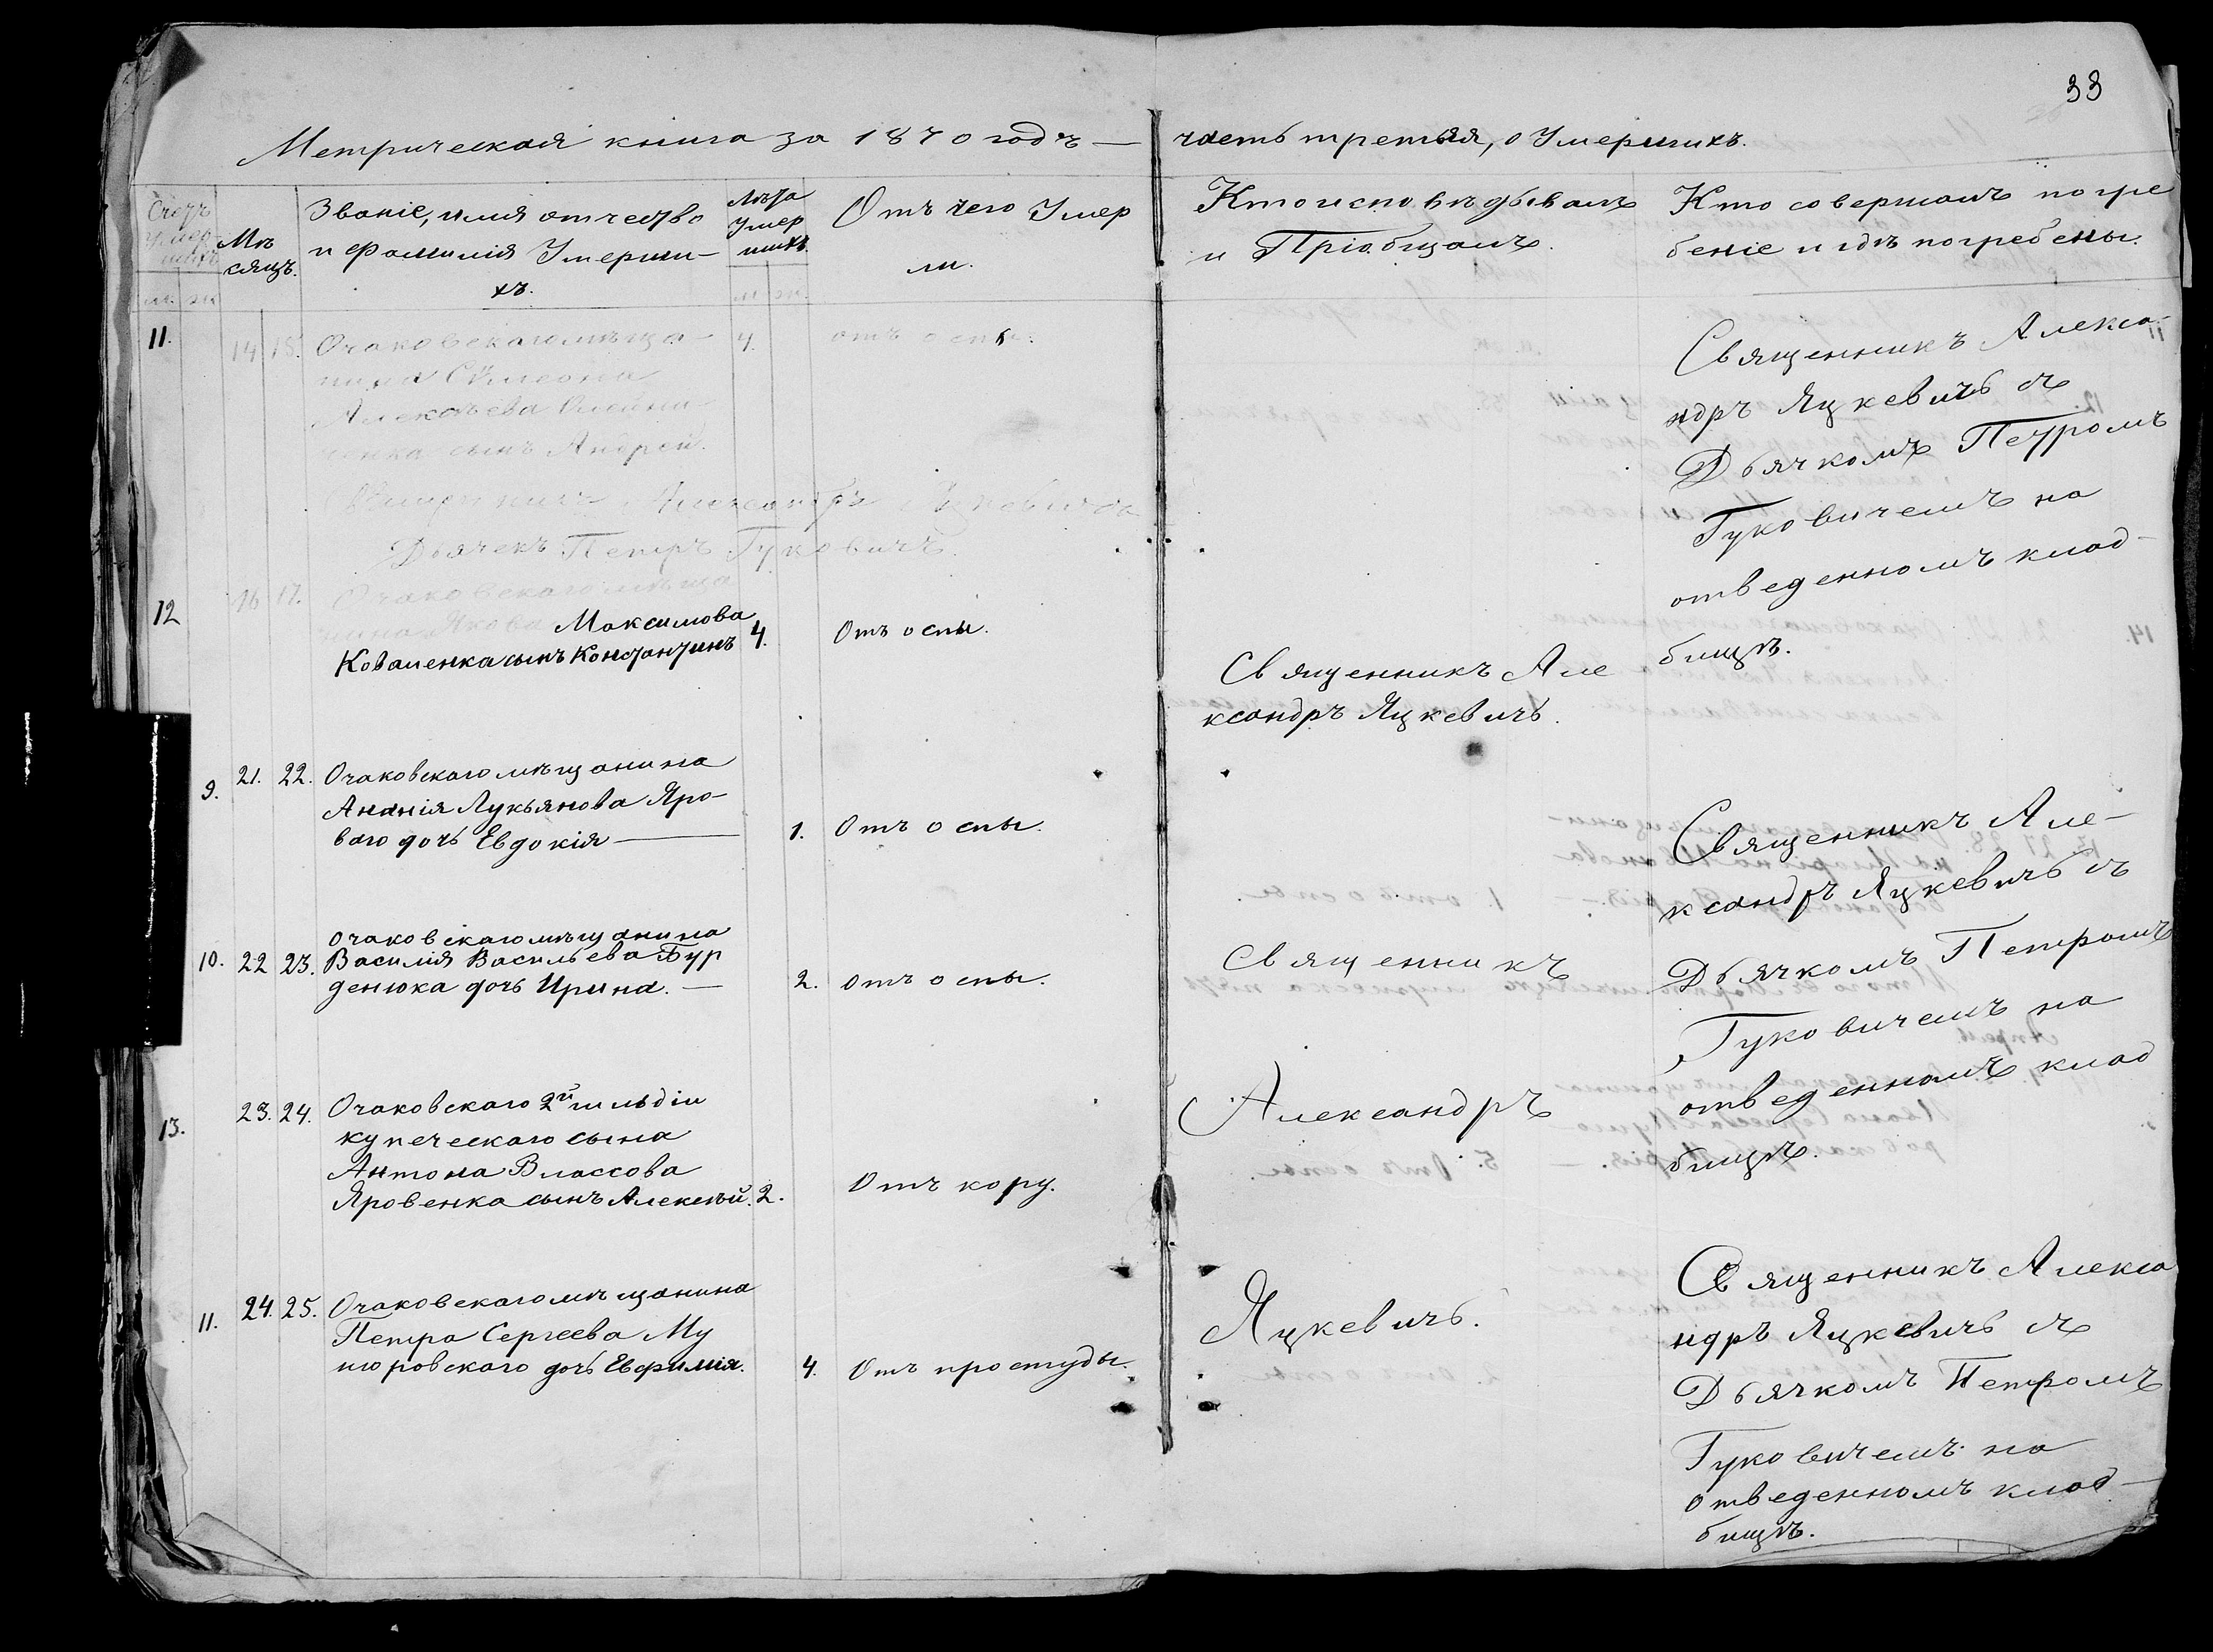 33
Метрическая книга за 1870 годъ — часть третьяя, о Умершихъ.
Счетъ Умер-шихъ
м. ж.
Мѣ
сяцъ.
Званіе, имя отчество
и Фамилія Умерши-
хъ.
Лѣта
Умер
шихъ.
м. ж.
Отъ чего Умер
ли.
Кто исповѣдывалъ
и Пріобщалъ.
Кто совершалъ погре
беніе и гдѣ погребены.
11. 14 15. Очаковскаго мѣща- 4. отъ оспы.
нина Симеона
Алексѣева Олейни-
ченка сынъ Андрей.
Священникъ Александръ Яцкевичъ
Дьячекъ Петръ Гуковичъ.
Священникъ Алекса-
ндръ Яцкевичь съ
Дьячкомъ Петромъ
Гуковичемъ на
отведенномъ клад-
бищѣ.
12 16 17. Очаковскаго мѣща
нина Якова Максимова
Коваленка сынъ Константинъ 4. Отъ оспы.
Священникъ Але
ксандръ Яцкевичь.
9. 21. 22. Очаковскаго мѣщанина
Ананія Лукьянова Яро-
ваго дочь Евдокія — 1. Отъ оспы.
10. 22 23. Очаковскаго мѣщанина
Василія Васильева Бур
денюка дочь Ирина. — 2. Отъ оспы.
Священникъ
Александръ
Яцкевичь.
Священникъ Але-
ксандръ Яцкевичь съ
Дьячкомъ Петромъ
Гуковичемъ на
отведенномъ клад
бищѣ.
13. 23. 24. Очаковскаго 2й гильдіи
купеческаго сына
Антона Влассова
Яровенка сынъ Алексѣй. 2. Отъ кору.
11. 24. 25. Очаковскаго мѣщанина
Петра Сергеева Му
нюровского дочь Евфимія. 4. Отъ простуды.
Священникъ Алекса
ндръ Яцкевичь съ
Дьячкомъ Петромъ
Гуковичемъ на
отведенномъ клад-
бищѣ.